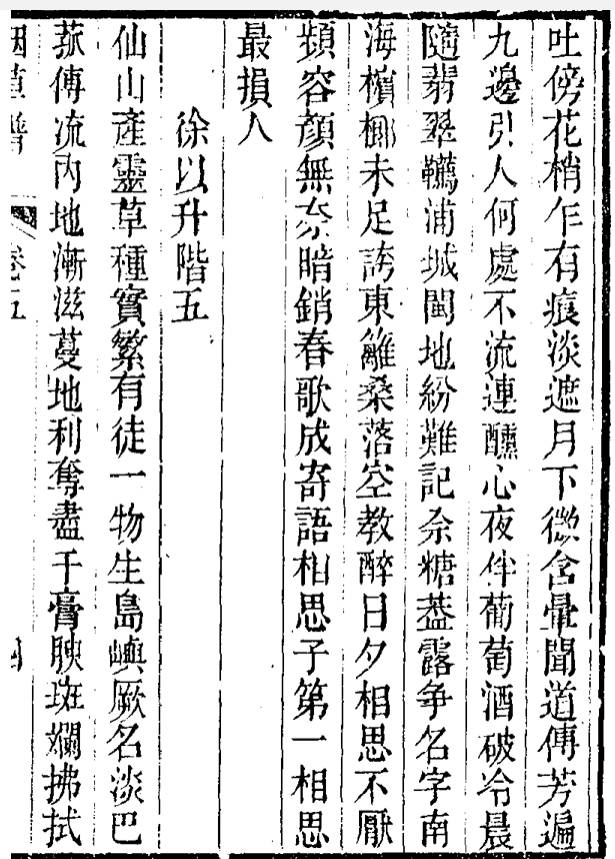 吐傍花梢乍有痕淡遮月下微含暈聞道傳芳遍
九邊引人何處不流連醺心夜伴葡萄酒破冷晨
隨翡翠韉浦城閩地紛難記佘糖葢露争名字南
海檳榔未足誇東籬桑落空教醉日夕相思不厭
頻容顏無奈暗銷春歌成寄語相思子第一相思
最損人
徐以升階五
仙山產靈草種實繁有徒一物生島嶼厥名淡巴
菰傳流內地漸滋蔓地利奪盡千膏腴斑斕拂拭
烟草譜 卷五 四